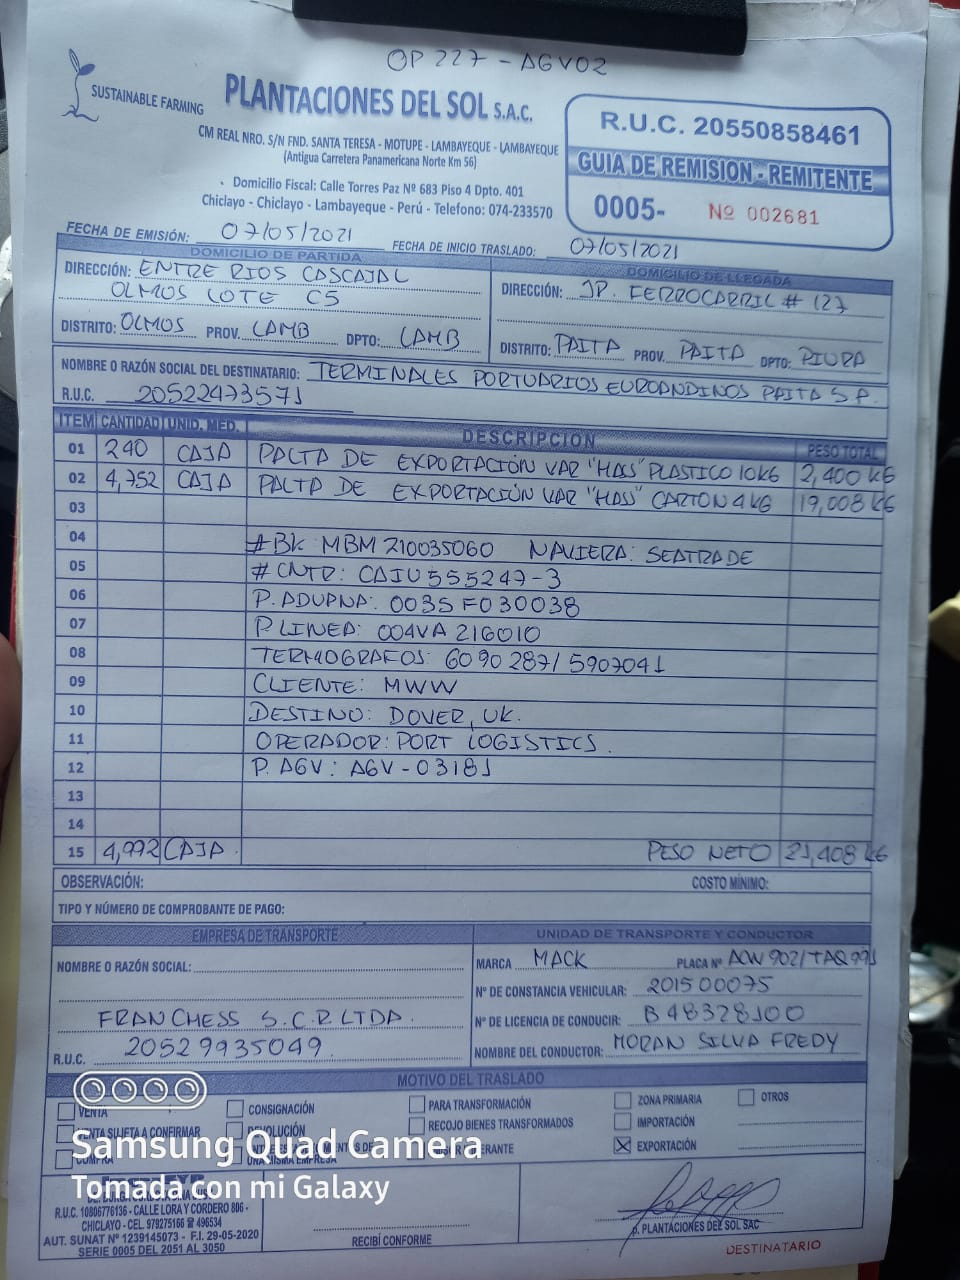 OP 227 - AGV02
SUSTAINABLE FARMING
PLANTACIONES DEL SOL S.A.C.
CM REAL NRO. S/N FND. SANTA TERESA - MOTUPE - LAMBAYEQUE - LAMBAYEQUE
(Antigua Carretera Panamericana Norte Km 56)
Domicilio Fiscal: Calle Torres Paz Nº 683 Piso 4 Dpto. 401
Chiclayo - Chiclayo - Lambayeque - Perú - Telefono: 074-233570
R.U.C. 20550858461
GUIA DE REMISION - REMITENTE
0005- Nº 002681
FECHA DE EMISIÓN: 07/05/2021 FECHA DE INICIO TRASLADO: 07/05/2021
DOMICILIO DE PARTIDA
DIRECCIÓN: ENTRE RIOS CASCAJAL
OLMOS LOTE C5
DISTRITO: OLMOS PROV. LAMB DPTO: LAMB
DOMICILIO DE LLEGADA
DIRECCIÓN: JP. FERROCARRIL # 127
DISTRITO: PAITA PROV. PAITA DPTO: PIURA
NOMBRE O RAZÓN SOCIAL DEL DESTINATARIO: TERMINALES PORTUARIOS EUROANDINOS PAITA S.A.
R.U.C. 20522473571
ITEM CANTIDAD UNID. MED. DESCRIPCIÓN PESO TOTAL
01 240 CAJA PALTA DE EXPORTACIÓN VAR "HASS" PLASTICO 10KG 2,400 KG
02 4,752 CAJA PALTA DE EXPORTACIÓN VAR "HASS" CARTON 4 KG 19,008 KG
03
04 #BK MBM 210035060 NAVIERA: SEATRADE
05 # CNTR: CAIU 555247-3
06 P. ADUANA: 0035 F030038
07 P. LINEA: 004VA 216010
08 TERMOGRAFOS: 6090287/5907041
09 CLIENTE: MWW
10 DESTINO: DOVER, UK.
11 OPERADOR: PORT LOGISTICS.
12 P. AGV: AGV-03181
13
14
15 4,992 CAJA. PESO NETO 21,408 KG
OBSERVACIÓN: COSTO MÍNIMO:
TIPO Y NÚMERO DE COMPROBANTE DE PAGO:
EMPRESA DE TRANSPORTE
NOMBRE O RAZÓN SOCIAL:
FRANCHESS S.C.R.LTDA.
R.U.C. 20529935049
UNIDAD DE TRANSPORTE Y CONDUCTOR
MARCA MACK PLACA Nº AOW 902/TAQ991
Nº DE CONSTANCIA VEHICULAR: 201500075
Nº DE LICENCIA DE CONDUCIR: B48328100
NOMBRE DEL CONDUCTOR: MORAN SILVA FREDY
MOTIVO DEL TRASLADO
VENTA CONSIGNACIÓN PARA TRANSFORMACIÓN ZONA PRIMARIA OTROS
VENTA SUJETA A CONFIRMAR DEVOLUCIÓN RECOJO BIENES TRANSFORMADOS IMPORTACIÓN
COMPRA UNA MISMA EMPRESA EXPORTACIÓN
Samsung Quad Camera
Tomada con mi Galaxy
R.U.C. 10806776136 - CALLE LORA Y CORDERO 806 -
CHICLAYO - CEL. 979275166 ☎ 496534
AUT. SUNAT Nº 1239145073 - F.I. 29-05-2020
SERIE 0005 DEL 2051 AL 3050
RECIBÍ CONFORME
p. PLANTACIONES DEL SOL SAC
DESTINATARIO